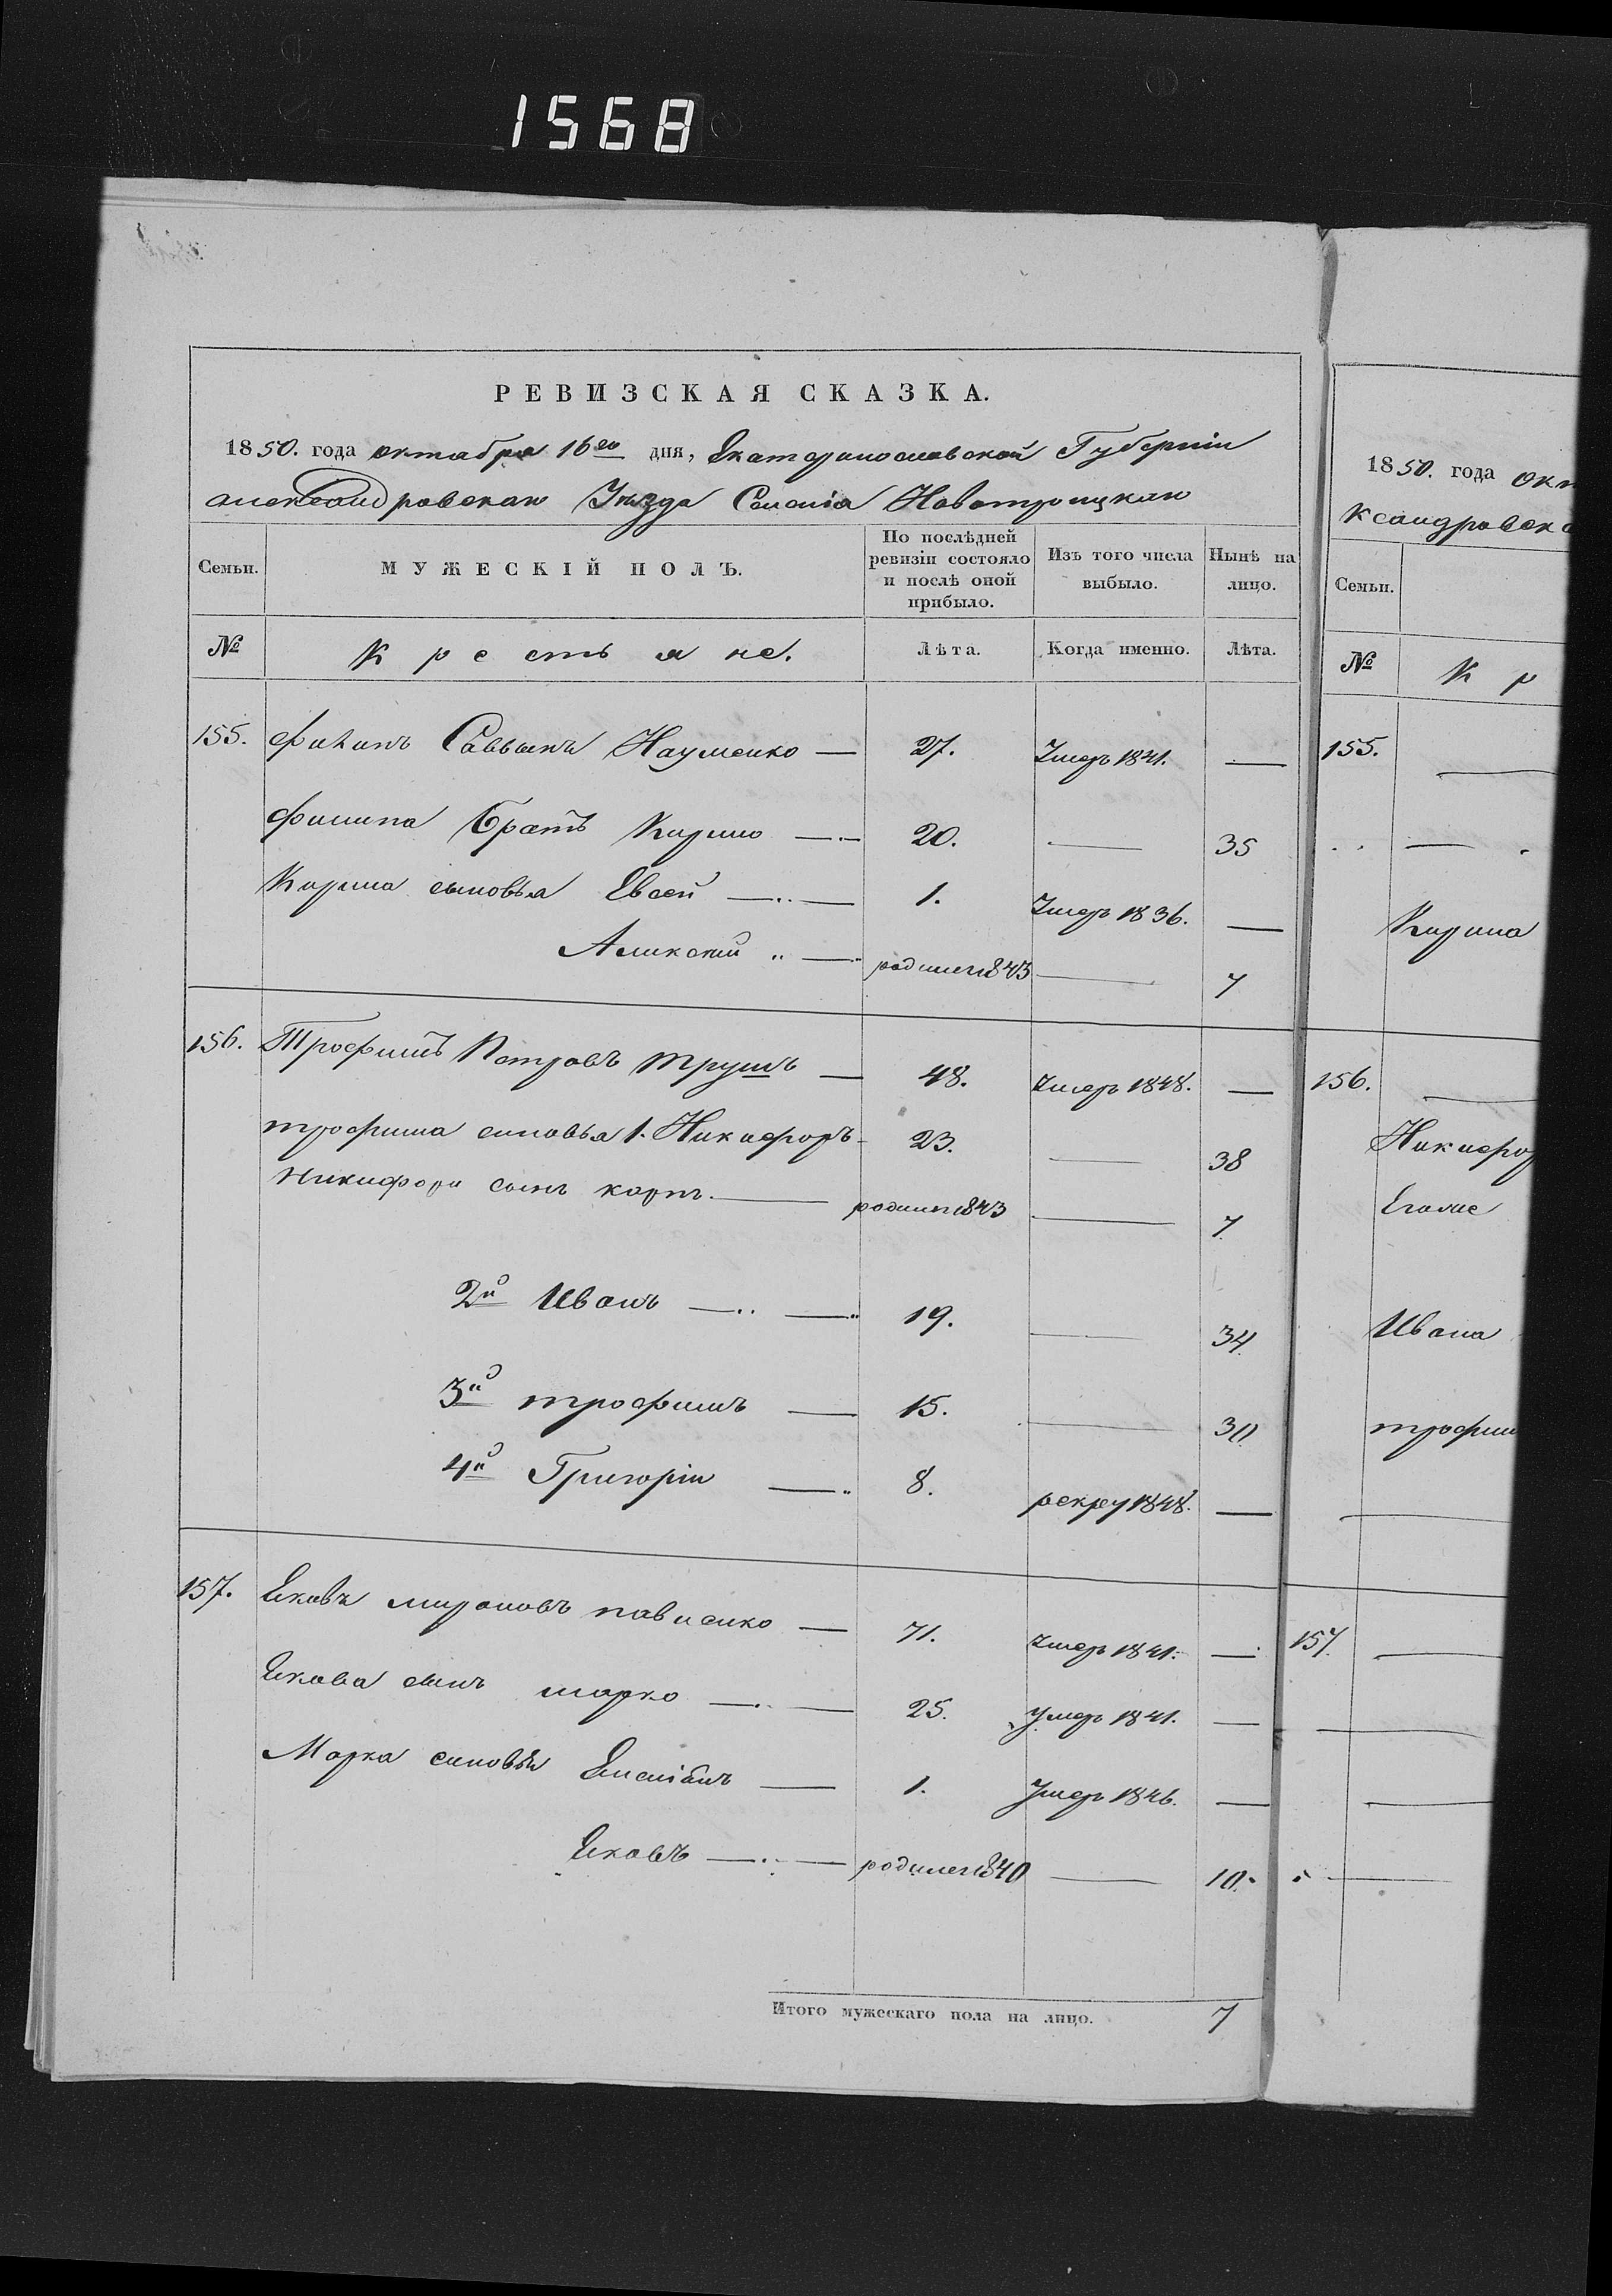 1568
РЕВИЗСКАЯ СКАЗКА.
1850. года октабря 16го дня, Екатеринославской Губерніи
александровскаго Уезда Селенія Новотроицкаго
Семьи. МУЖЕСКІЙ ПОЛЪ. По послѣдней ревизіи состояло и послѣ оной прибыло. Изъ того числа выбыло. Нынѣ на лицо.
№ Крестьяне. Лѣта. Когда именно. Лѣта.
155. Саввинъ Науменко — 27. Умеръ 1841. —
филипа Братъ Кирило — 20. — 35
Кирила сыновья Евсей — 1. Умеръ 1836. —
родился 1843 — 7
156. Трофимъ Петровъ Трушъ — 48. Умеръ 1848. —
трофима сыновья 1. Никифоръ - 23. — 38
Никифора сынъ карпъ. — родился 1843 — 7
2й Иванъ — 19. — 34.
3й трофимъ — 15. — 30.
4й Григоріи — 8. рекру 1848. —
157. Яковъ мироновъ — 71. Умеръ 1841. —
Якова сынъ марко — 25. Умеръ 1841. —
Марка сыновья — 1. Умеръ 1846. —
Яковъ — родился 1840 — 10.
Итого мужескаго пола на лицо. 7
1850. года окт
ксандровска
Семьи.
№ К р
155. —
Кирила
156. —
Никифор
Ивана
трофим
157. —